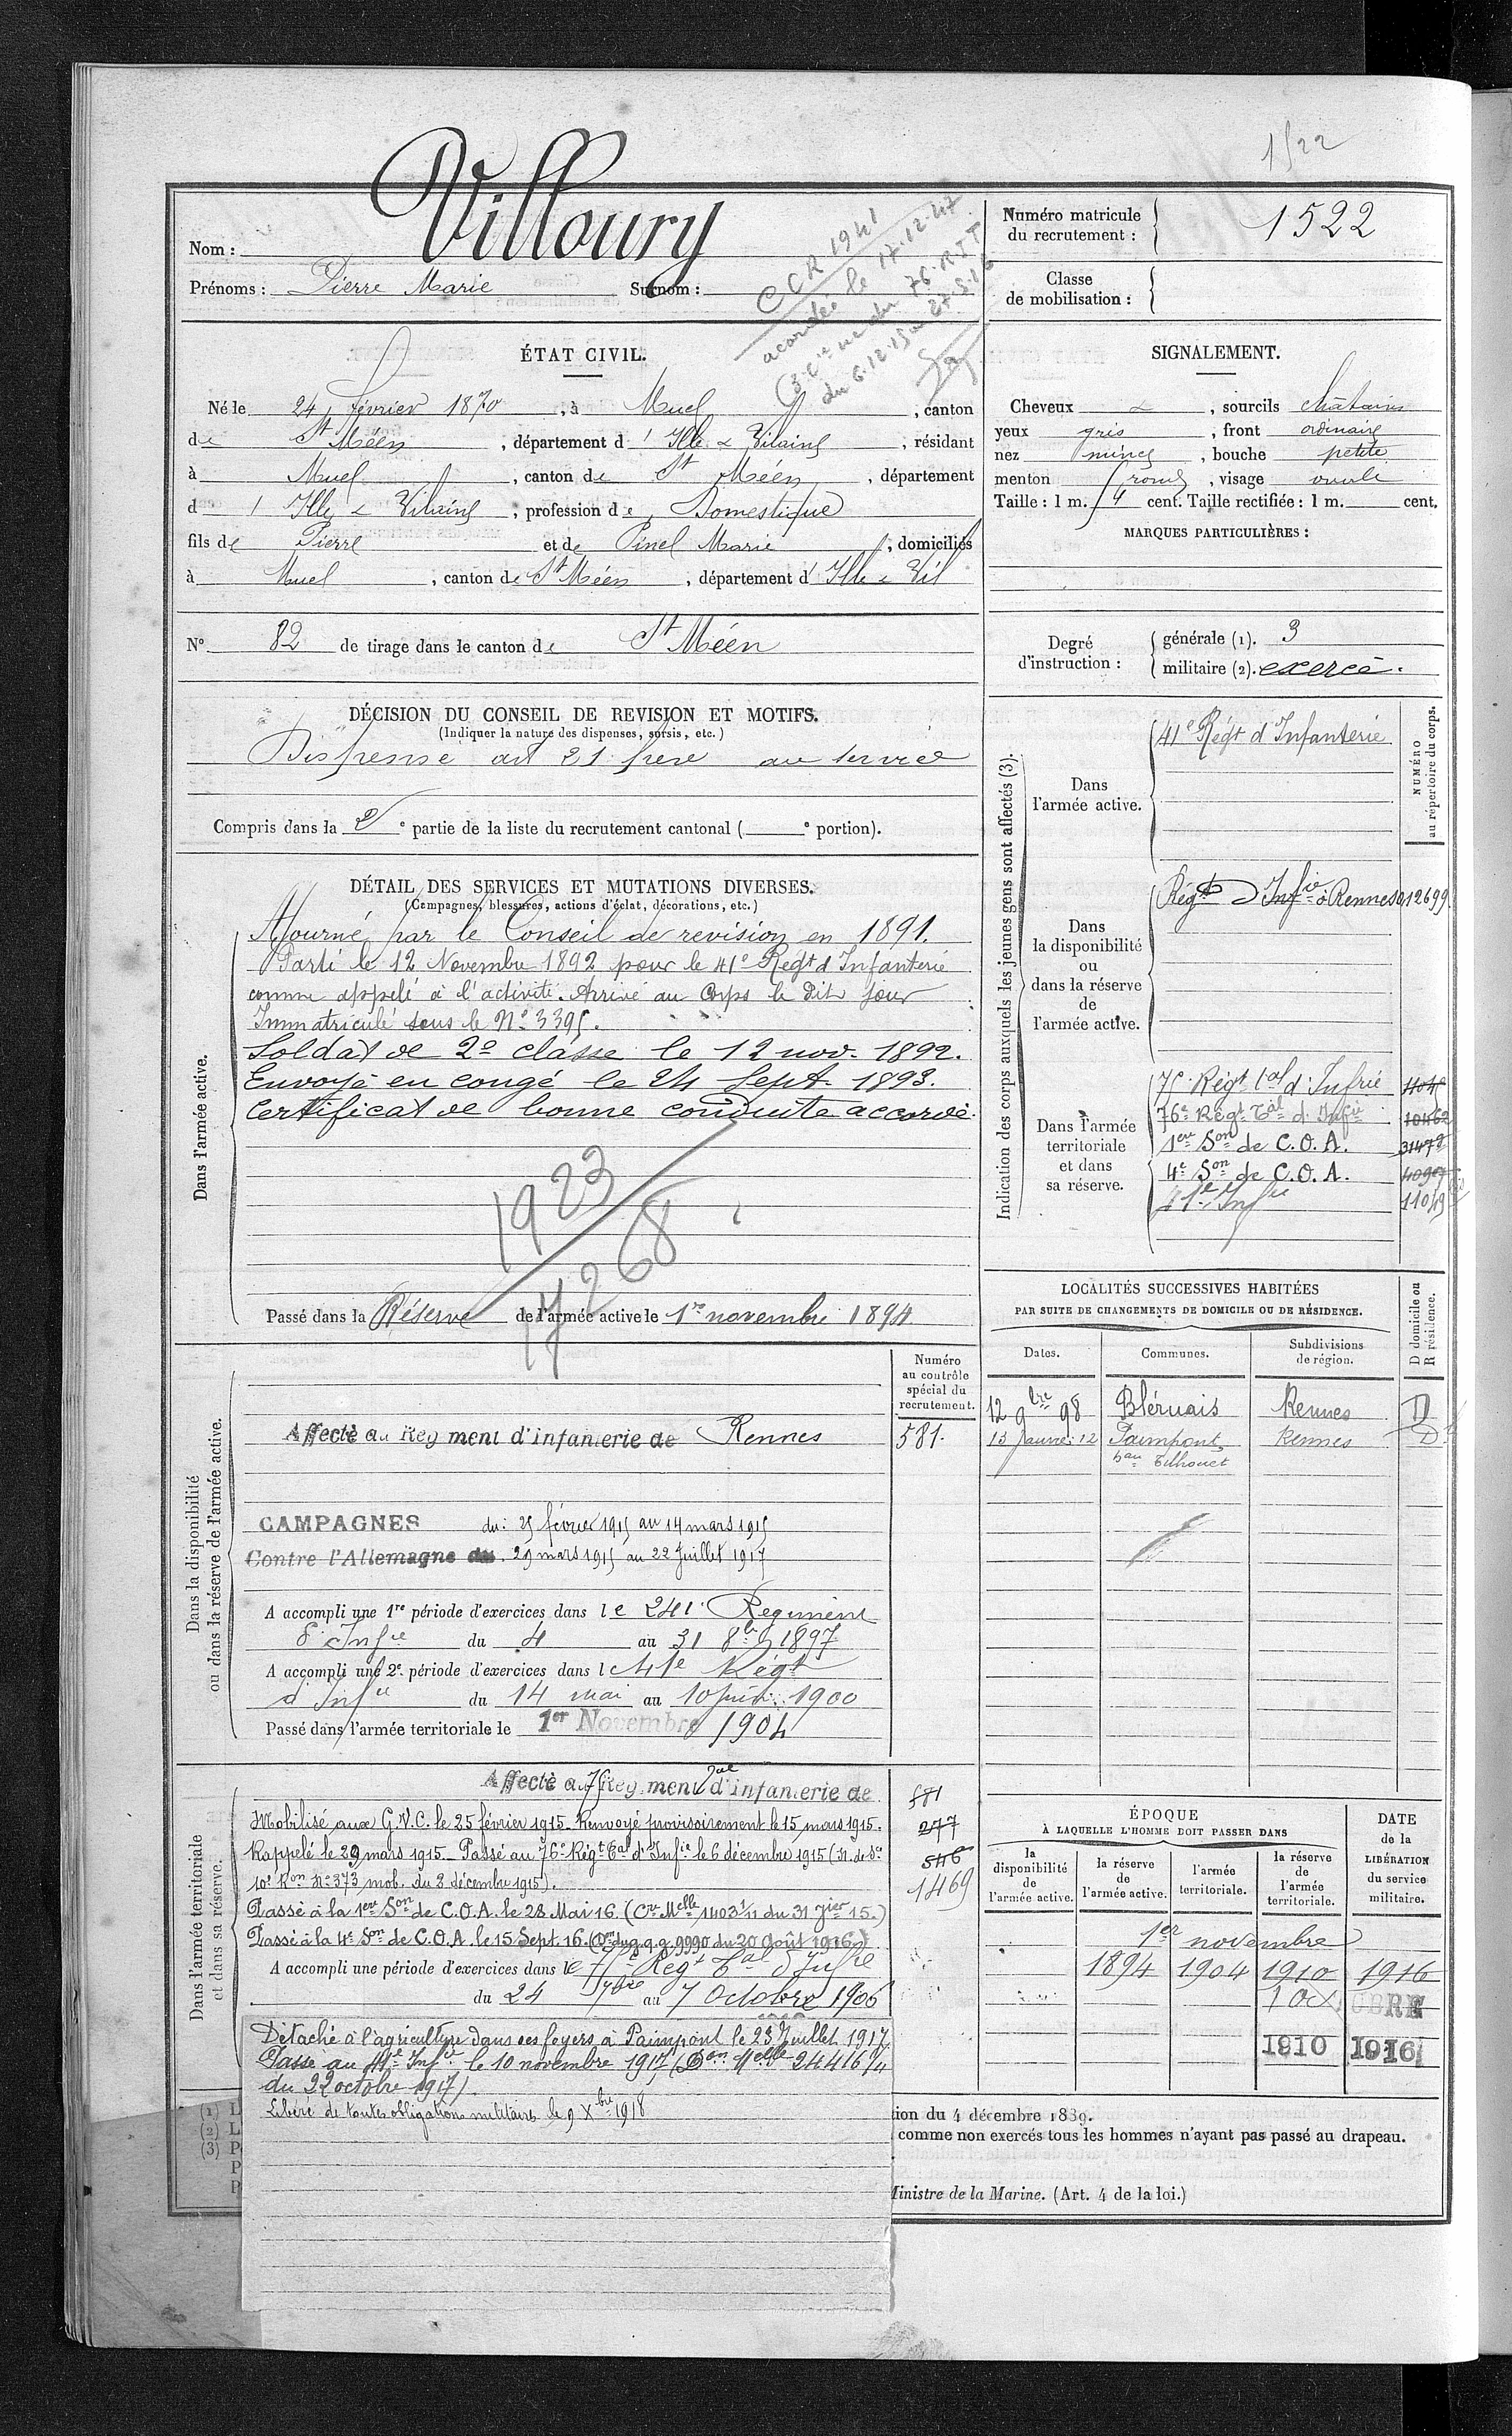 1522
Villoury
Nom :
Prénoms : Pierre Marie Surnom :
CCR 1941
accordée le 17.12.47
(3e Cie du 76 RIT
du 6.12.15 au 27.5.16
Numéro matricule du recrutement : 1522
Classe de mobilisation :
ÉTAT CIVIL.
Né le 24 février 1870, à Muel, canton
de St Méen, département d'Ille & Vilaine, résidant
à Muel, canton de St Méen, département
d'Ille & Vilaine, profession de Domestique
fils de Pierre et de Pinel Marie, domiciliés
à Muel, canton de St Méen, département d'Ille & Vil
N° 82 de tirage dans le canton de St Méen
SIGNALEMENT.
Cheveux &, sourcils châtains
yeux gris, front ordinaire
nez mince, bouche petite
menton rond, visage ovale
Taille : 1 m. cent. Taille rectifiée : 1 m. cent.
MARQUES PARTICULIÈRES :
Degré d'instruction :
générale (1). 3
militaire (2). exercé.
DÉCISION DU CONSEIL DE REVISION ET MOTIFS.
(Indiquer la nature des dispenses, sursis, etc.)
Dispensé art 21 frère au service
Compris dans la 2e partie de la liste du recrutement cantonal ( e portion).
DÉTAIL DES SERVICES ET MUTATIONS DIVERSES.
(Campagnes, blessures, actions d'éclat, décorations, etc.)
Dans l'armée active.
Ajourné par le Conseil de revision en 1891.
Parti le 12 Novembre 1892 pour le 41e Régt d'Infanterie
comme appelé à l'activité. Arrivé au Corps le Dit jour
Immatriculé sous le N° 3395.
Soldat de 2e classe le 12 nov. 1892.
Envoyé en congé le 24 Sept. 1893.
Certificat de bonne conduite accordé.
1923
17268
Passé dans la Réserve de l'armée active le 1er novembre 1894
Indication des corps auxquels les jeunes gens sont affectés (3).
NUMÉRO au répertoire du corps.
Dans l'armée active.
41e Régt d'Infanterie
Dans la disponibilité ou dans la réserve de l'armée active.
Régt D'Infie à Rennes 012699
Dans l'armée territoriale et dans sa réserve.
75e Régt tal d'Infrie
76e Régt Tal d'Infie 10462
1ere Son de C.O.A. 31478
4e Son de C.O.A. 40907
41e Infie
LOCALITÉS SUCCESSIVES HABITÉES
PAR SUITE DE CHANGEMENTS DE DOMICILE OU DE RÉSIDENCE.
D domicile ou R résidence.
Dates. Communes. Subdivisions de région.
12 9bre 98 Bléruais Rennes D
13 Janvier 12 Paimpont Rennes D
hau Telhouet
Dans la disponibilité
ou dans la réserve de l'armée active.
Numéro au contrôle spécial du recrutement.
Affecté au Régiment d'infanterie de Rennes 581
CAMPAGNES du : 25 février 1915 au 14 mars 1915
Contre l'Allemagne du 29 mars 1915 au 22 Juillet 1917
A accompli une 1re période d'exercices dans le 241e Régiment
d'Infie du 4 au 31 8bre 1897
A accompli une 2e période d'exercices dans le 41e Régt
d'Infie du 14 mai au 10 juin 1900
Passé dans l'armée territoriale le 1er Novembre 1904
Dans l'armée territoriale
et dans sa réserve.
Affecté au 75 Régiment tal d'infanterie de 581
Mobilisé aux G.V.C. le 25 février 1915. Renvoyé provisoirement le 15 mars 1915. 277
Rappelé le 29 mars 1915. Passé au 76e Régt Tal d'Infie le 6 décembre 1915 (N. de Sce 546
10e Ron N° 373 mob. du 3 décembre 1915). 1469
Passé à la 1ere Son de C.O.A. le 28 Mai 16. (Cre Melle 14031/11 du 31 Jier 15.)
Passé à la 4e Son de C.O.A. le 15 Sept. 16. (Don du g.q.g. 9990 du 20 Août 1916)
A accompli une période d'exercices dans le 75e Régt Tal d'Infie
du 24 7bre au 7 Octobre 1906
Détaché à l'agriculture dans ses foyers à Paimpont le 23 Juillet 1917.
Passé au 41e Infie le 10 novembre 1917 (Don Melle 24416 /11
du 22 octobre 1917)
Libéré de toutes obligations militaires le 9 Xbre 1918
ÉPOQUE
À LAQUELLE L'HOMME DOIT PASSER DANS
DATE de la LIBÉRATION du service militaire.
la disponibilité de l'armée active. la réserve de l'armée active. l'armée territoriale. la réserve de l'armée territoriale.
1er novembre
1894 1904 1910 1916
1 OCTOBRE
1910 1916
(1) L
(2) L
(3) P
P
P
ion du 4 décembre 1889.
comme non exercés tous les hommes n'ayant pas passé au drapeau.
Ministre de la Marine. (Art. 4 de la loi.)